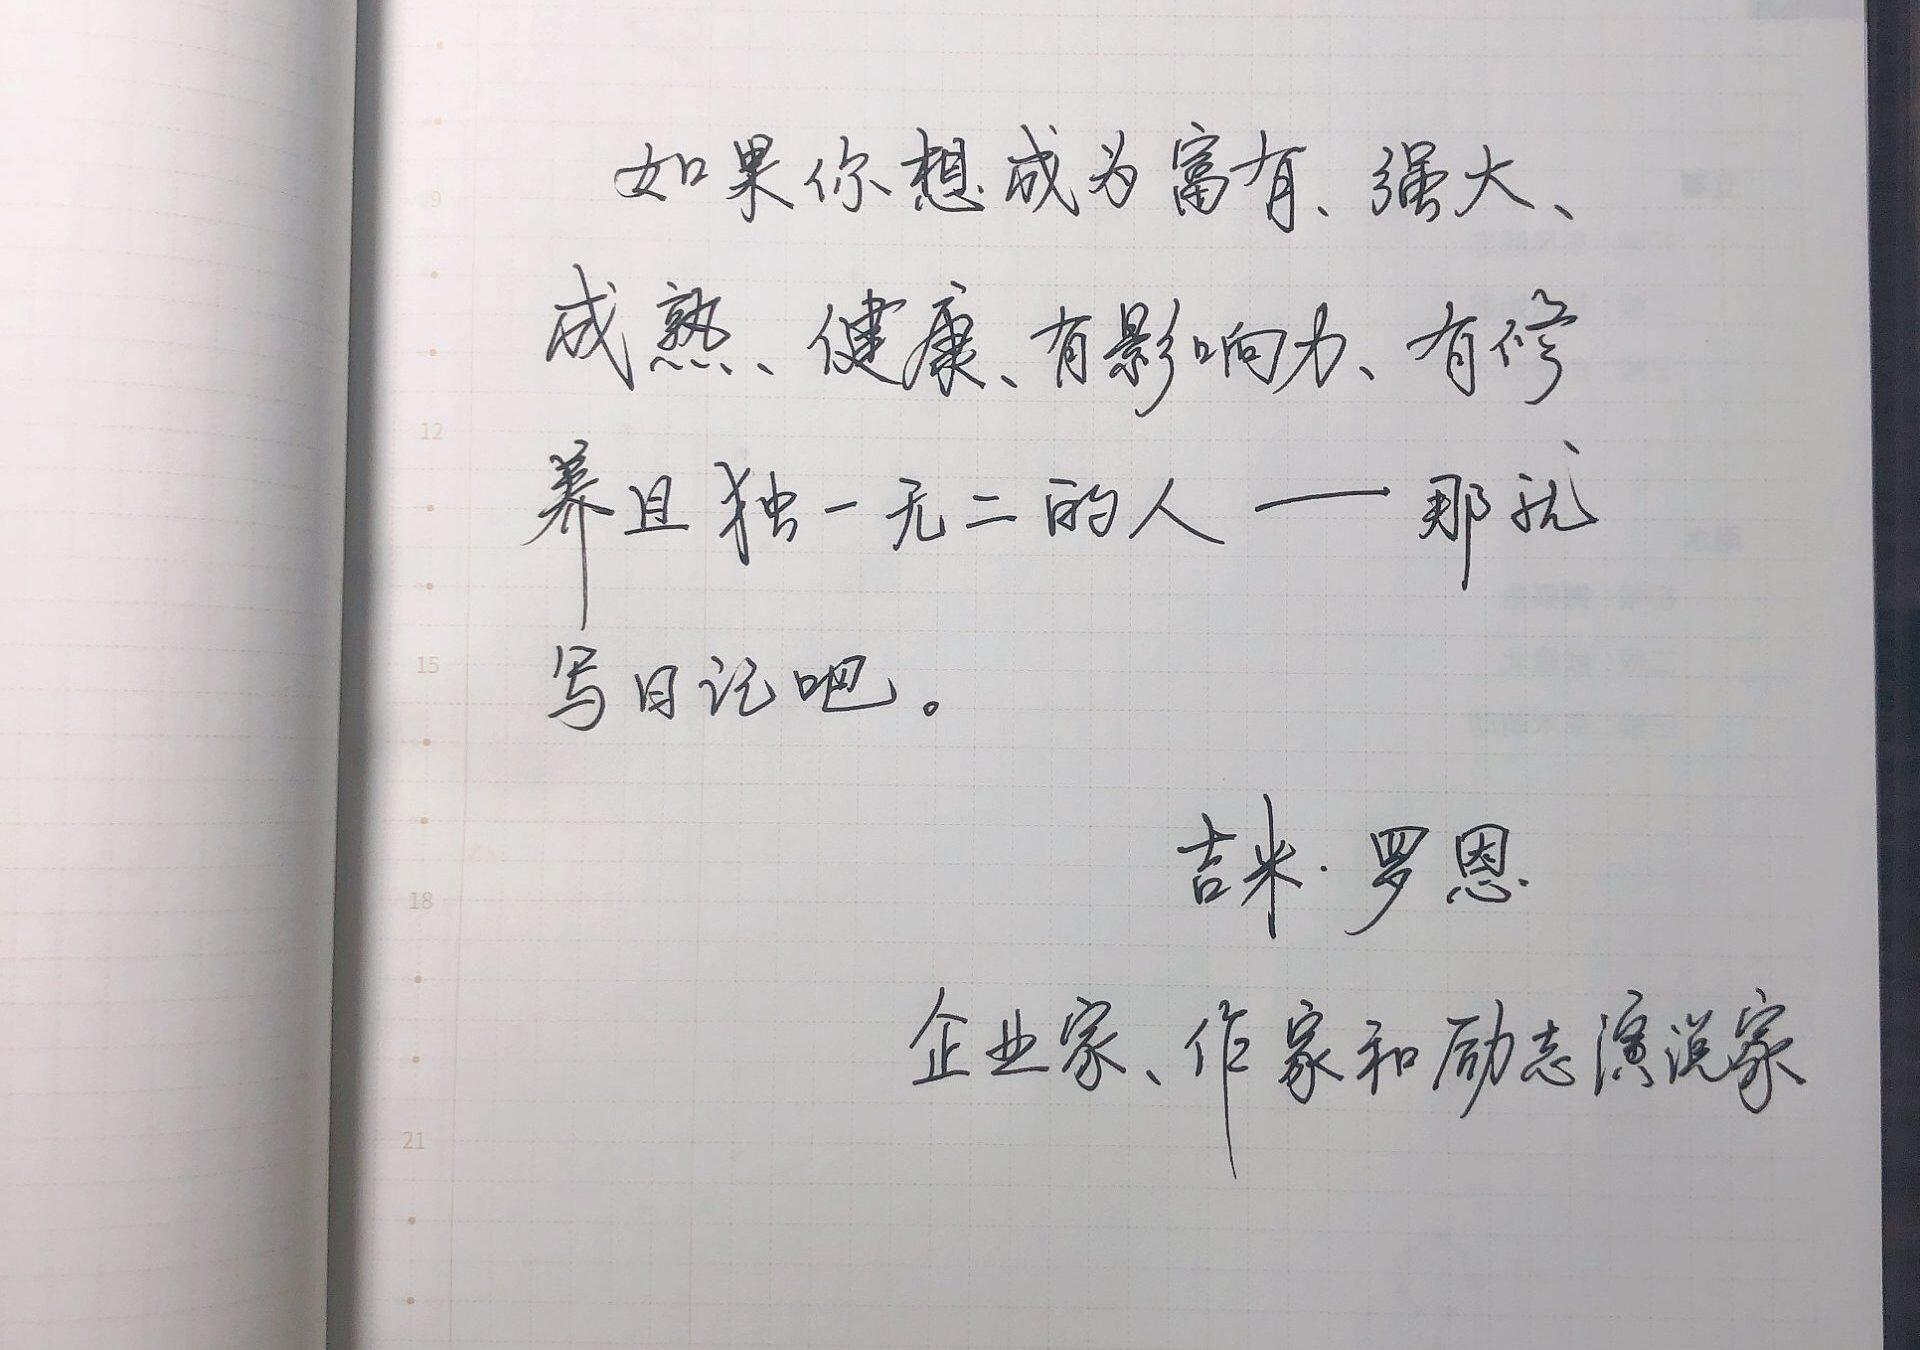 如果你想成为富有、强大、
成熟、健康、有影响力、有修
养且独一无二的人——那就
写日记吧。
吉米·罗恩
企业家、作家和励志演说家
9
12
15
18
21